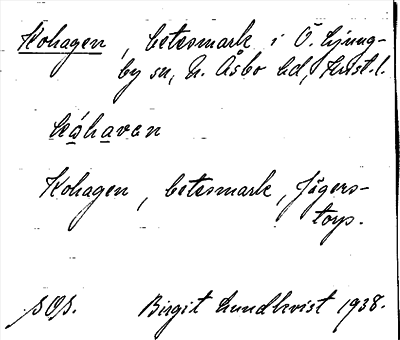 Kohagen, betesmark i Ö. Ljung-
by sn, N. Åsbo hd, Krist. l.
kåhavan
Kohagen, betesmark, Jägers-
torp.
SOS. Birgit Lundkvist 1938.